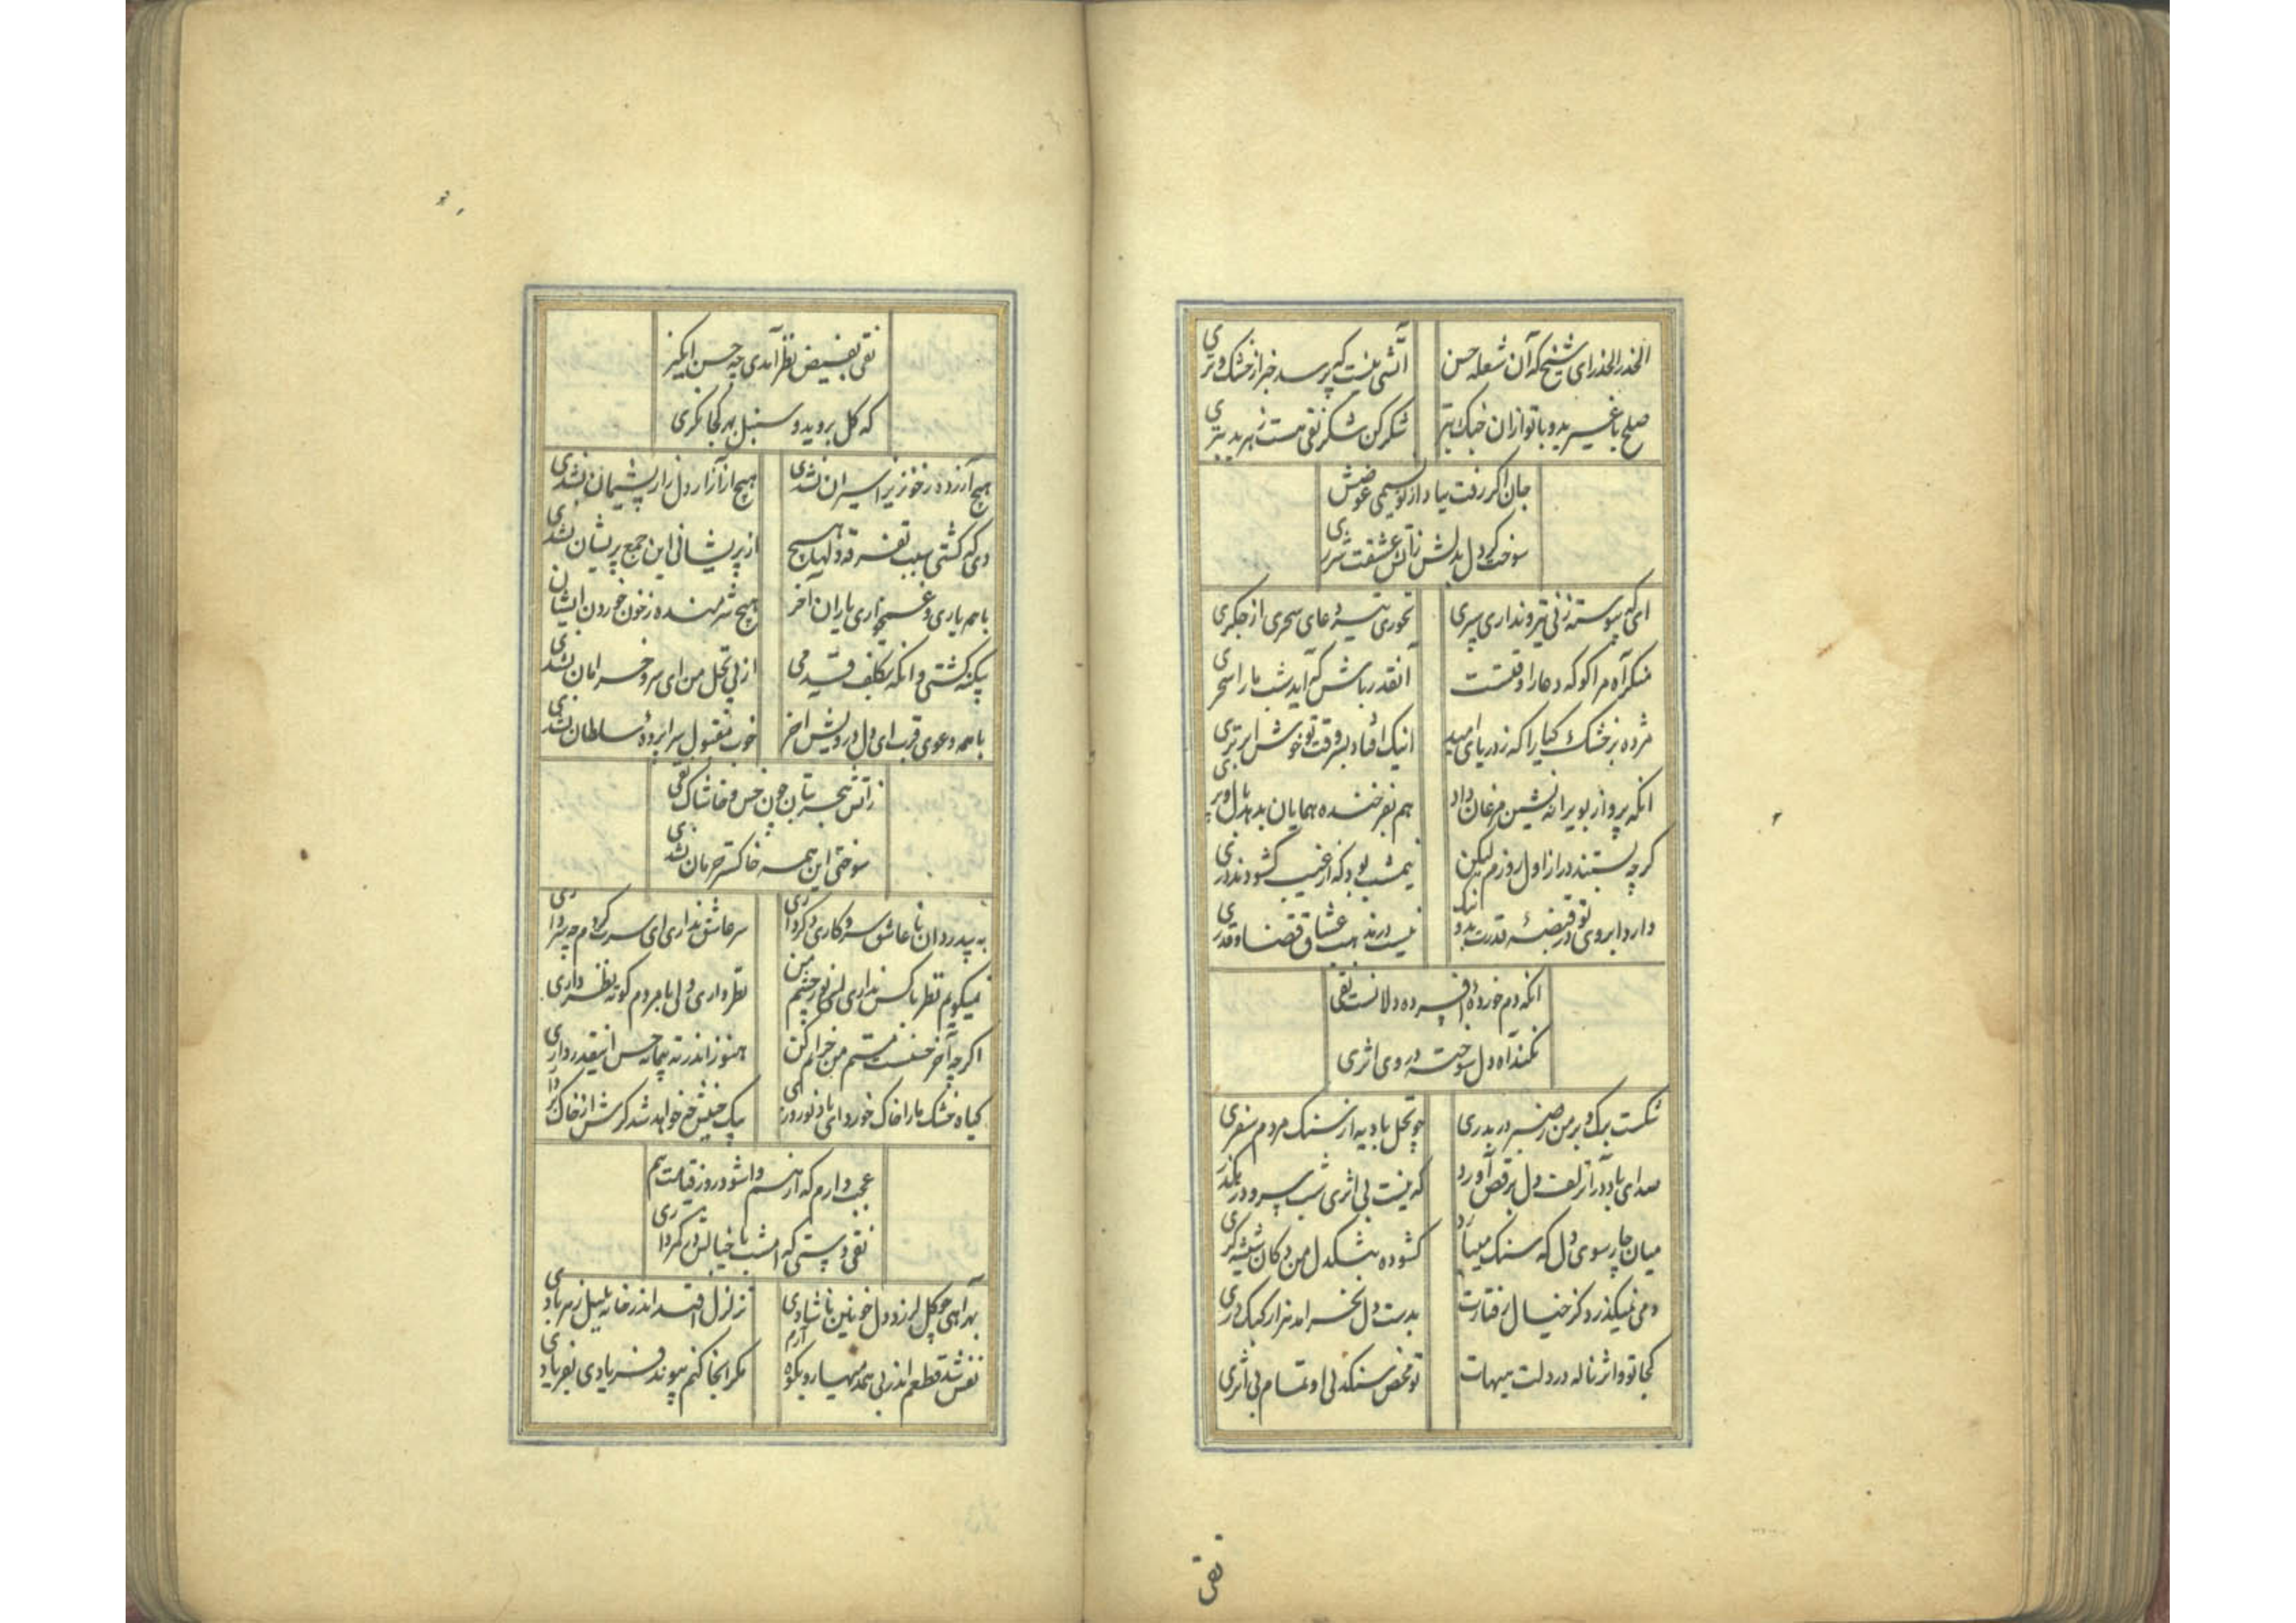 الحذر الحذر ای شیخ که آن شعله حسن
آتشی نیست که پرسد خبر از خشک و تری
صلح با غیر بد و با تو ازان جنک بتر
شکر کن شکر نقی هست ز هر بد بتری
جان اکر رفت بیاد از تو نسیمی عوضش
سوخت کر دل بدلش زآتش عشقت شرری
ای که پیوسته زنی تیر و نداری سپری
نخوری نیشهٔ دعای سحری از جکری
منکر آه مرا کو که دعا را وقتست
آنقدر باش که آید شب ما را سحری
مژده بر خشک کیا را که ز دریای امید
اینک افتاد بسر وقت تو خوش ابر تری
انکه پرواز بویرانه نشین مرغان داد
هم بفرخنده همایان بدهد بال و پری
کرچه بستند در از اول روزم لیکن
نیمشب بود که از غیب کشودند دری
دارد ابروی تو در قبضهٔ قدرت بد و نیک
نیست در مذهب عشاق قضا و قدری
انکه دم خوردهٔ افسرده دلانست نقی
نکند آه دل سوخته در وی اثری
شکست برک و بر من ز صرصر دربدری
چو نخل بادیه از سنک مردم سفری
صدای باد در آن زلف دل برقص آورد
که نیست بی اثری شب سرود در بکذری
میان چارسوی دل که سنک میبارد
کشوده شکدل من دکان شیشه کری
دمی نمیکذرد کز خیال رفتارت
بدست دل نخرامد هزار کبک دری
کجا تو و اثر ناله در دلت هیهات
تو محض سنکدلی او تمام بی اثری
نقی
نقی بفیض نظر آمدی چه حسن انکیز
که کل بروید و سنبل بهر کجا نکری
هیچ آزرده ز خونریز اسیران نشدی
هیچ از آزار دل زار پشیمان نشدی
دمی که کشتی سبب تفرقه دلها هیچ
از پریشانی این جمع پریشان نشدی
با همه یاری و غمخواری یاران آخر
هیچ شرمنده ز خون خوردن ایشان نشدی
بیکنه کشتی و انکه بتکلف قدمی
از پی نخل من ای سرو خرامان نشدی
با همه دعوی قرب ای دل درویش اخر
خوب مقبول سراپردهٔ سلطان نشدی
زآتش هجر بتان چون خس و خاشاک نقی
سوختی این همه خاکستر حرمان نشدی
به بیدردان نا عاشق سر و کاری دکر داری
سر عاشق نداری ای سرت کردم چه سر داری
نمیکویم نظر با کس نداری لیک ای نور چشم من
نظر داری ولی با مردم کوته نظر داری
اکرچه آخر حسنست مستم من خرابم کن
هنوز اندر ته پیمانه حسن اینقدر داری
کیاه خشک ما را خاک خورد ای باد نوروزی
بیک جنبش چه خواهد شد کرش از خاک برداری
عجب دارم که از هم واشود روز قیامت هم
نقی دستی که امشب با خیالش در کمر داری
بهر آهی چو کل لرزد دل خونین ناشادی
تزلزل افتد اندر خانهٔ بلبل ز هر بادی
نفس شد قطعم اندر بی همدمیها رو بکوه آرم
مکر آنجا کنم پیوند فریادی بفریادی